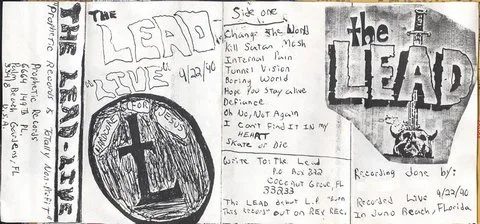 THE LEAD-LIVE
Prophetic Records is Totally Non-Profit
Prophetic Records
6664 149th PL
Palm Beach Gardens, FL
33418
U.S.A.
THE
LEAD
"LIVE"
9/22/90
HARDCORE FOR JESUS
L
Side one
Change The World
Kill Satan Mosh
Internal Pain
Tunnel Vision
Boring World
Hope You Stay alive
Defiance
Oh No, Not Again
I can't Find It In my
HEART
Skate or Die
Write To: The Lead
P.O Box 332
Coconut Grove, FL
33233
The LEAD debut L.P. "Burn
This Record" out on REX REC.
the
LEAD
Recording done by:
9/22/90
Recorded Live
In Juno Beach, Florida